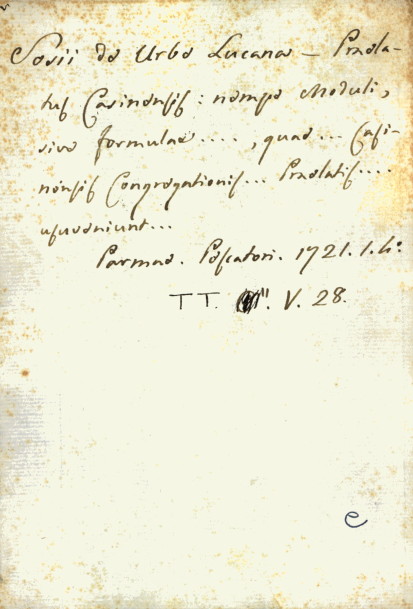 Sosii de Urbe Lucanae — Praela-
tus Casinensis: nempe Moduli,
sive formulae ...., quae ... Casi-
nensis Congregationis ... Praelatis ....
usuveniunt...
Parmae. Pescatori. 1721. 1. 4:
TT. V. 28.
e